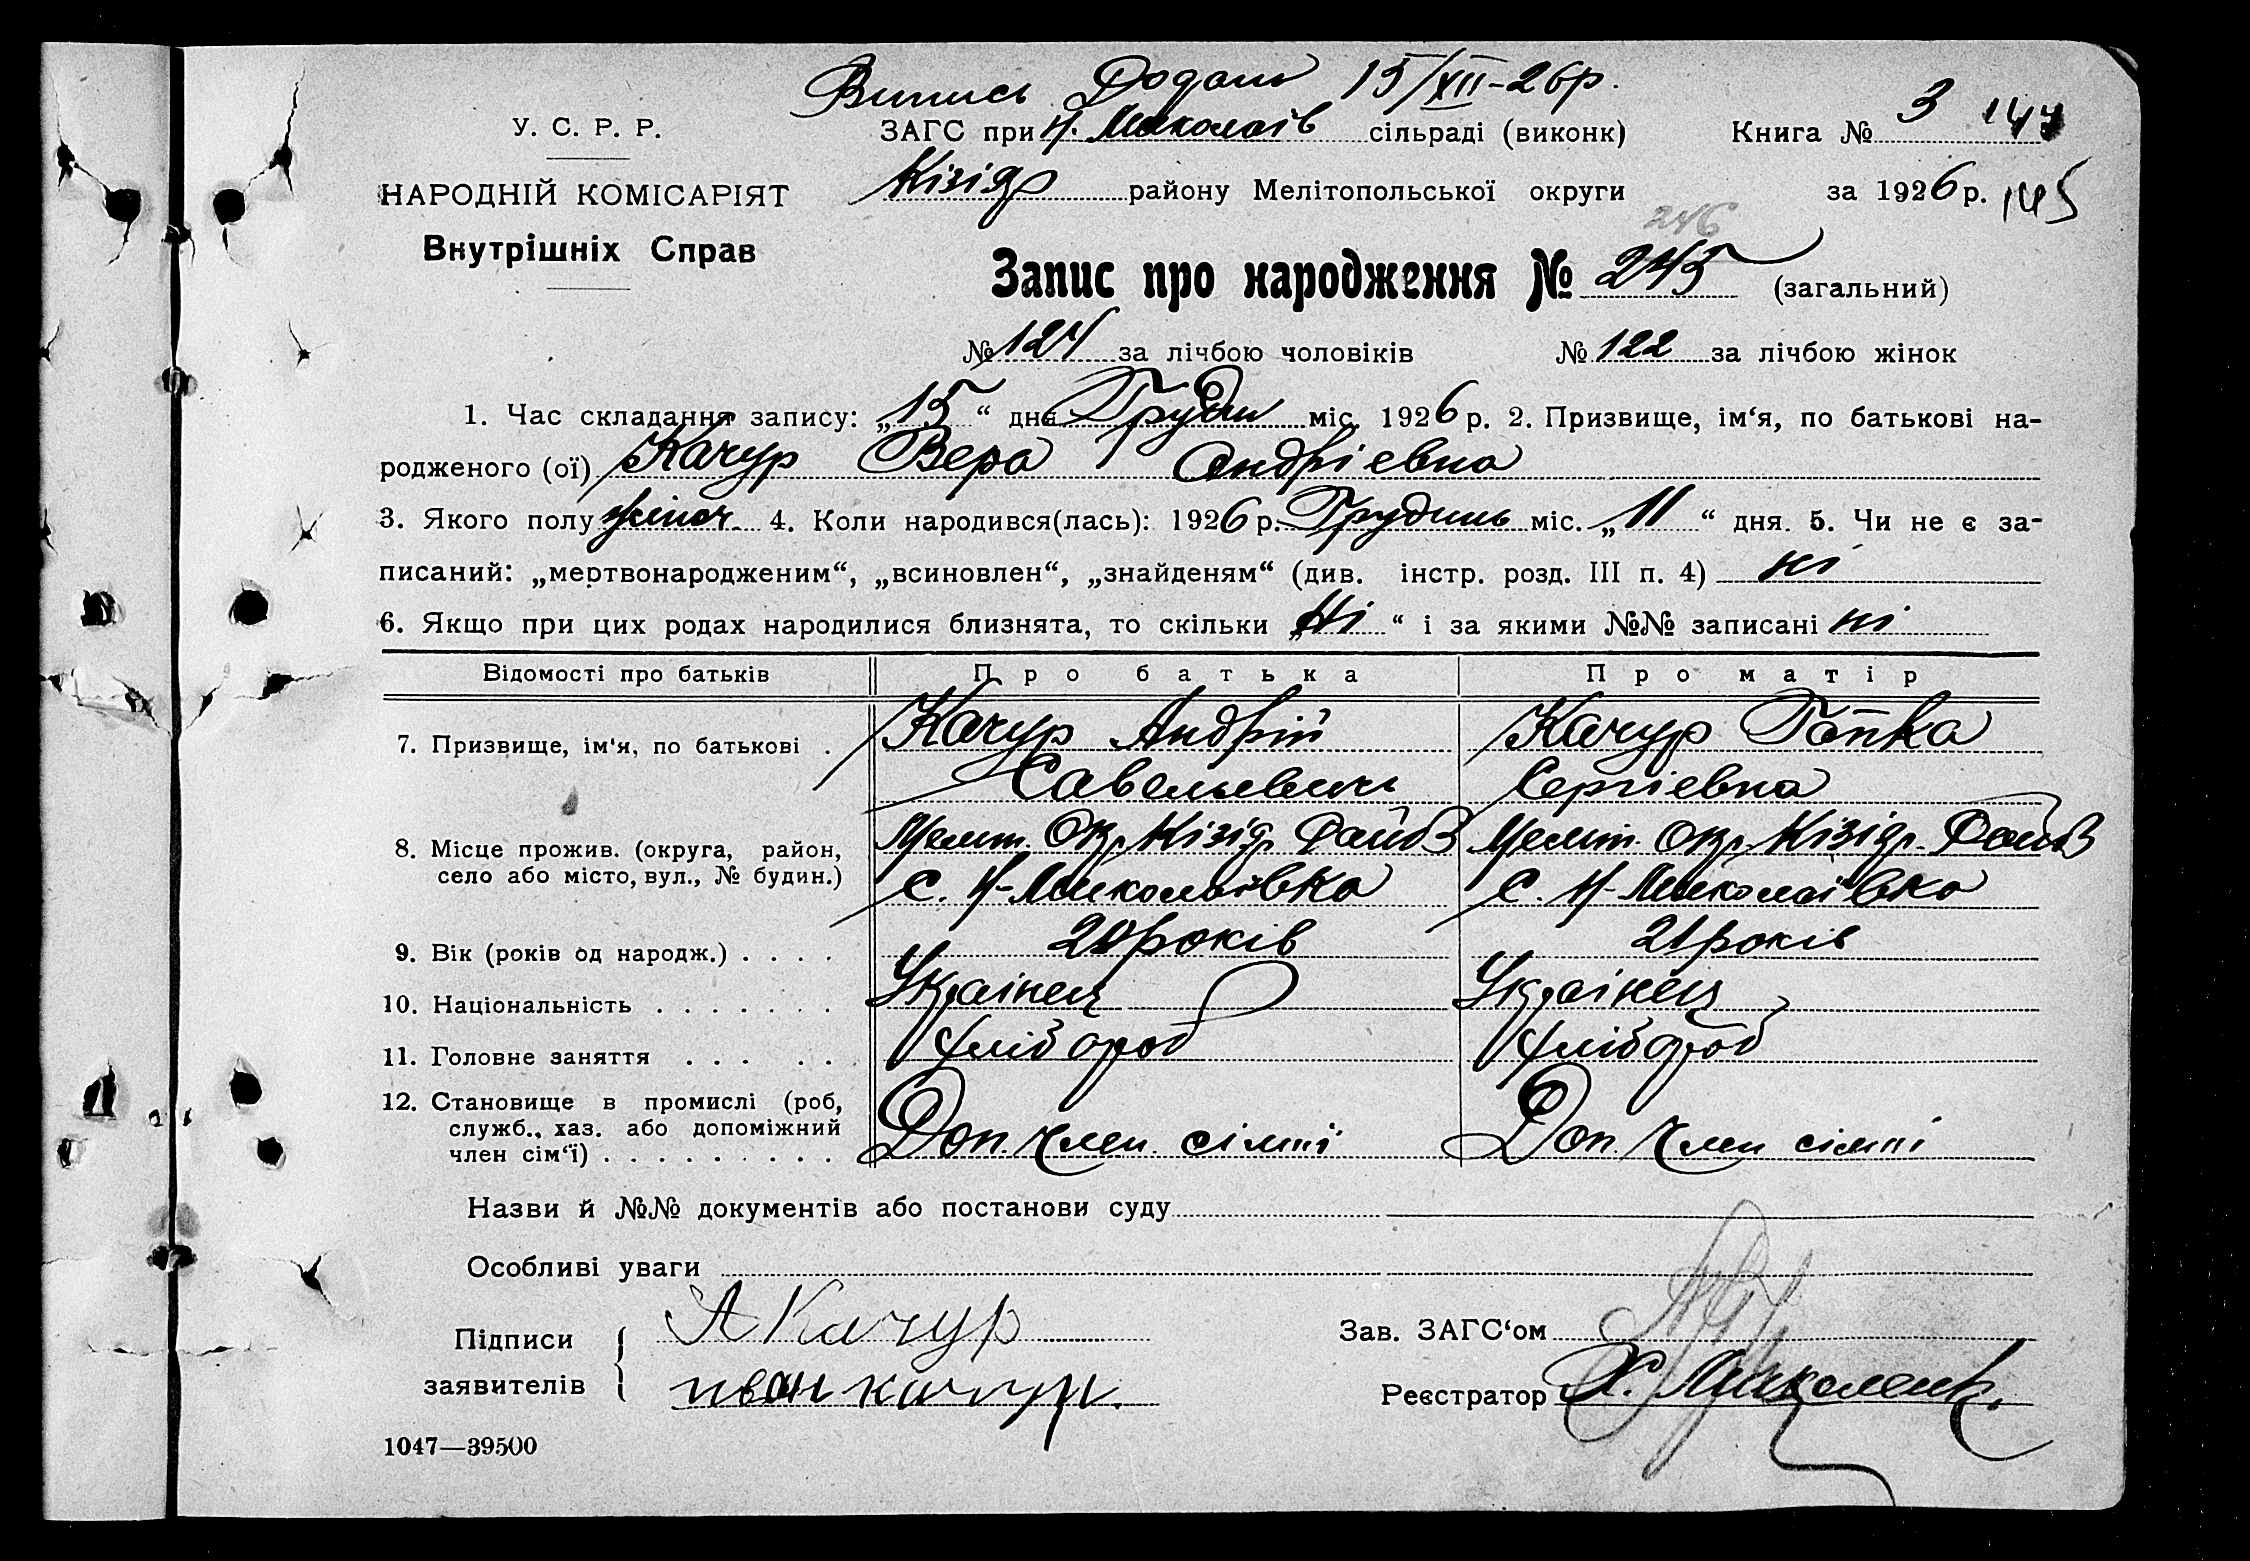 Випись Додани 15/XII-26р.
У. С. Р. Р.
ЗАГС при Н. Миколаїв сільраді (виконк)
Книга № 3 144
НАРОДНІЙ КОМІСАРІЯТ
Кізіяр району Мелітопольської округи
за 1926 р. 145
Внутрішніх Справ
246
Запис про народження № 245 (загальний)
№ 124 за лічбою чоловіків № 122 за лічбою жінок
1. Час складання запису: „15“ дня Грудн міс. 1926 р. 2. Призвище, ім‘я, по батькові на-
родженого (ої) Качур Вера Андріевна
3. Якого полу жіноч. 4. Коли народився(лась): 1926 р. Грудинь міс. „11“ дня. 5. Чи не є за-
писаний: „мертвонародженим“, „всиновлен“, „знайденям“ (див. інстр. розд. III п. 4) ні
6. Якщо при цих родах народилися близнята, то скільки „Ні“ і за якими №№ записані ні
Відомості про батьків Про батька Про матір
7. Призвище, ім‘я, по батькові . Качур Андрій Качур Гапка
Савельевичь Сергіевна
8. Місце прожив. (округа, район, Меліт. Окр. Кізідр. Меліт. Окр. Кізідр.
село або місто, вул., № будин.) С. Н-Миколаївка С. Н-Миколаївка
9. Вік (років од народж.) . . . . 20 років 21 років
10. Національність . . . . . . . Українец Українец
11. Головне заняття . . . . . Хлібороб Хлібороб
12. Становище в промислі (роб,
служб., хаз. або допоміжний
член сім‘ї) . . . . . . . . . Доп. Член сімні Доп. Член сімні
Назви й №№ документів або постанови суду
Особливі уваги
Підписи А Качур
Зав. ЗАГС‘ом
заявителів иван качур.
Реєстратор Х. Миколенк.
1047—39500